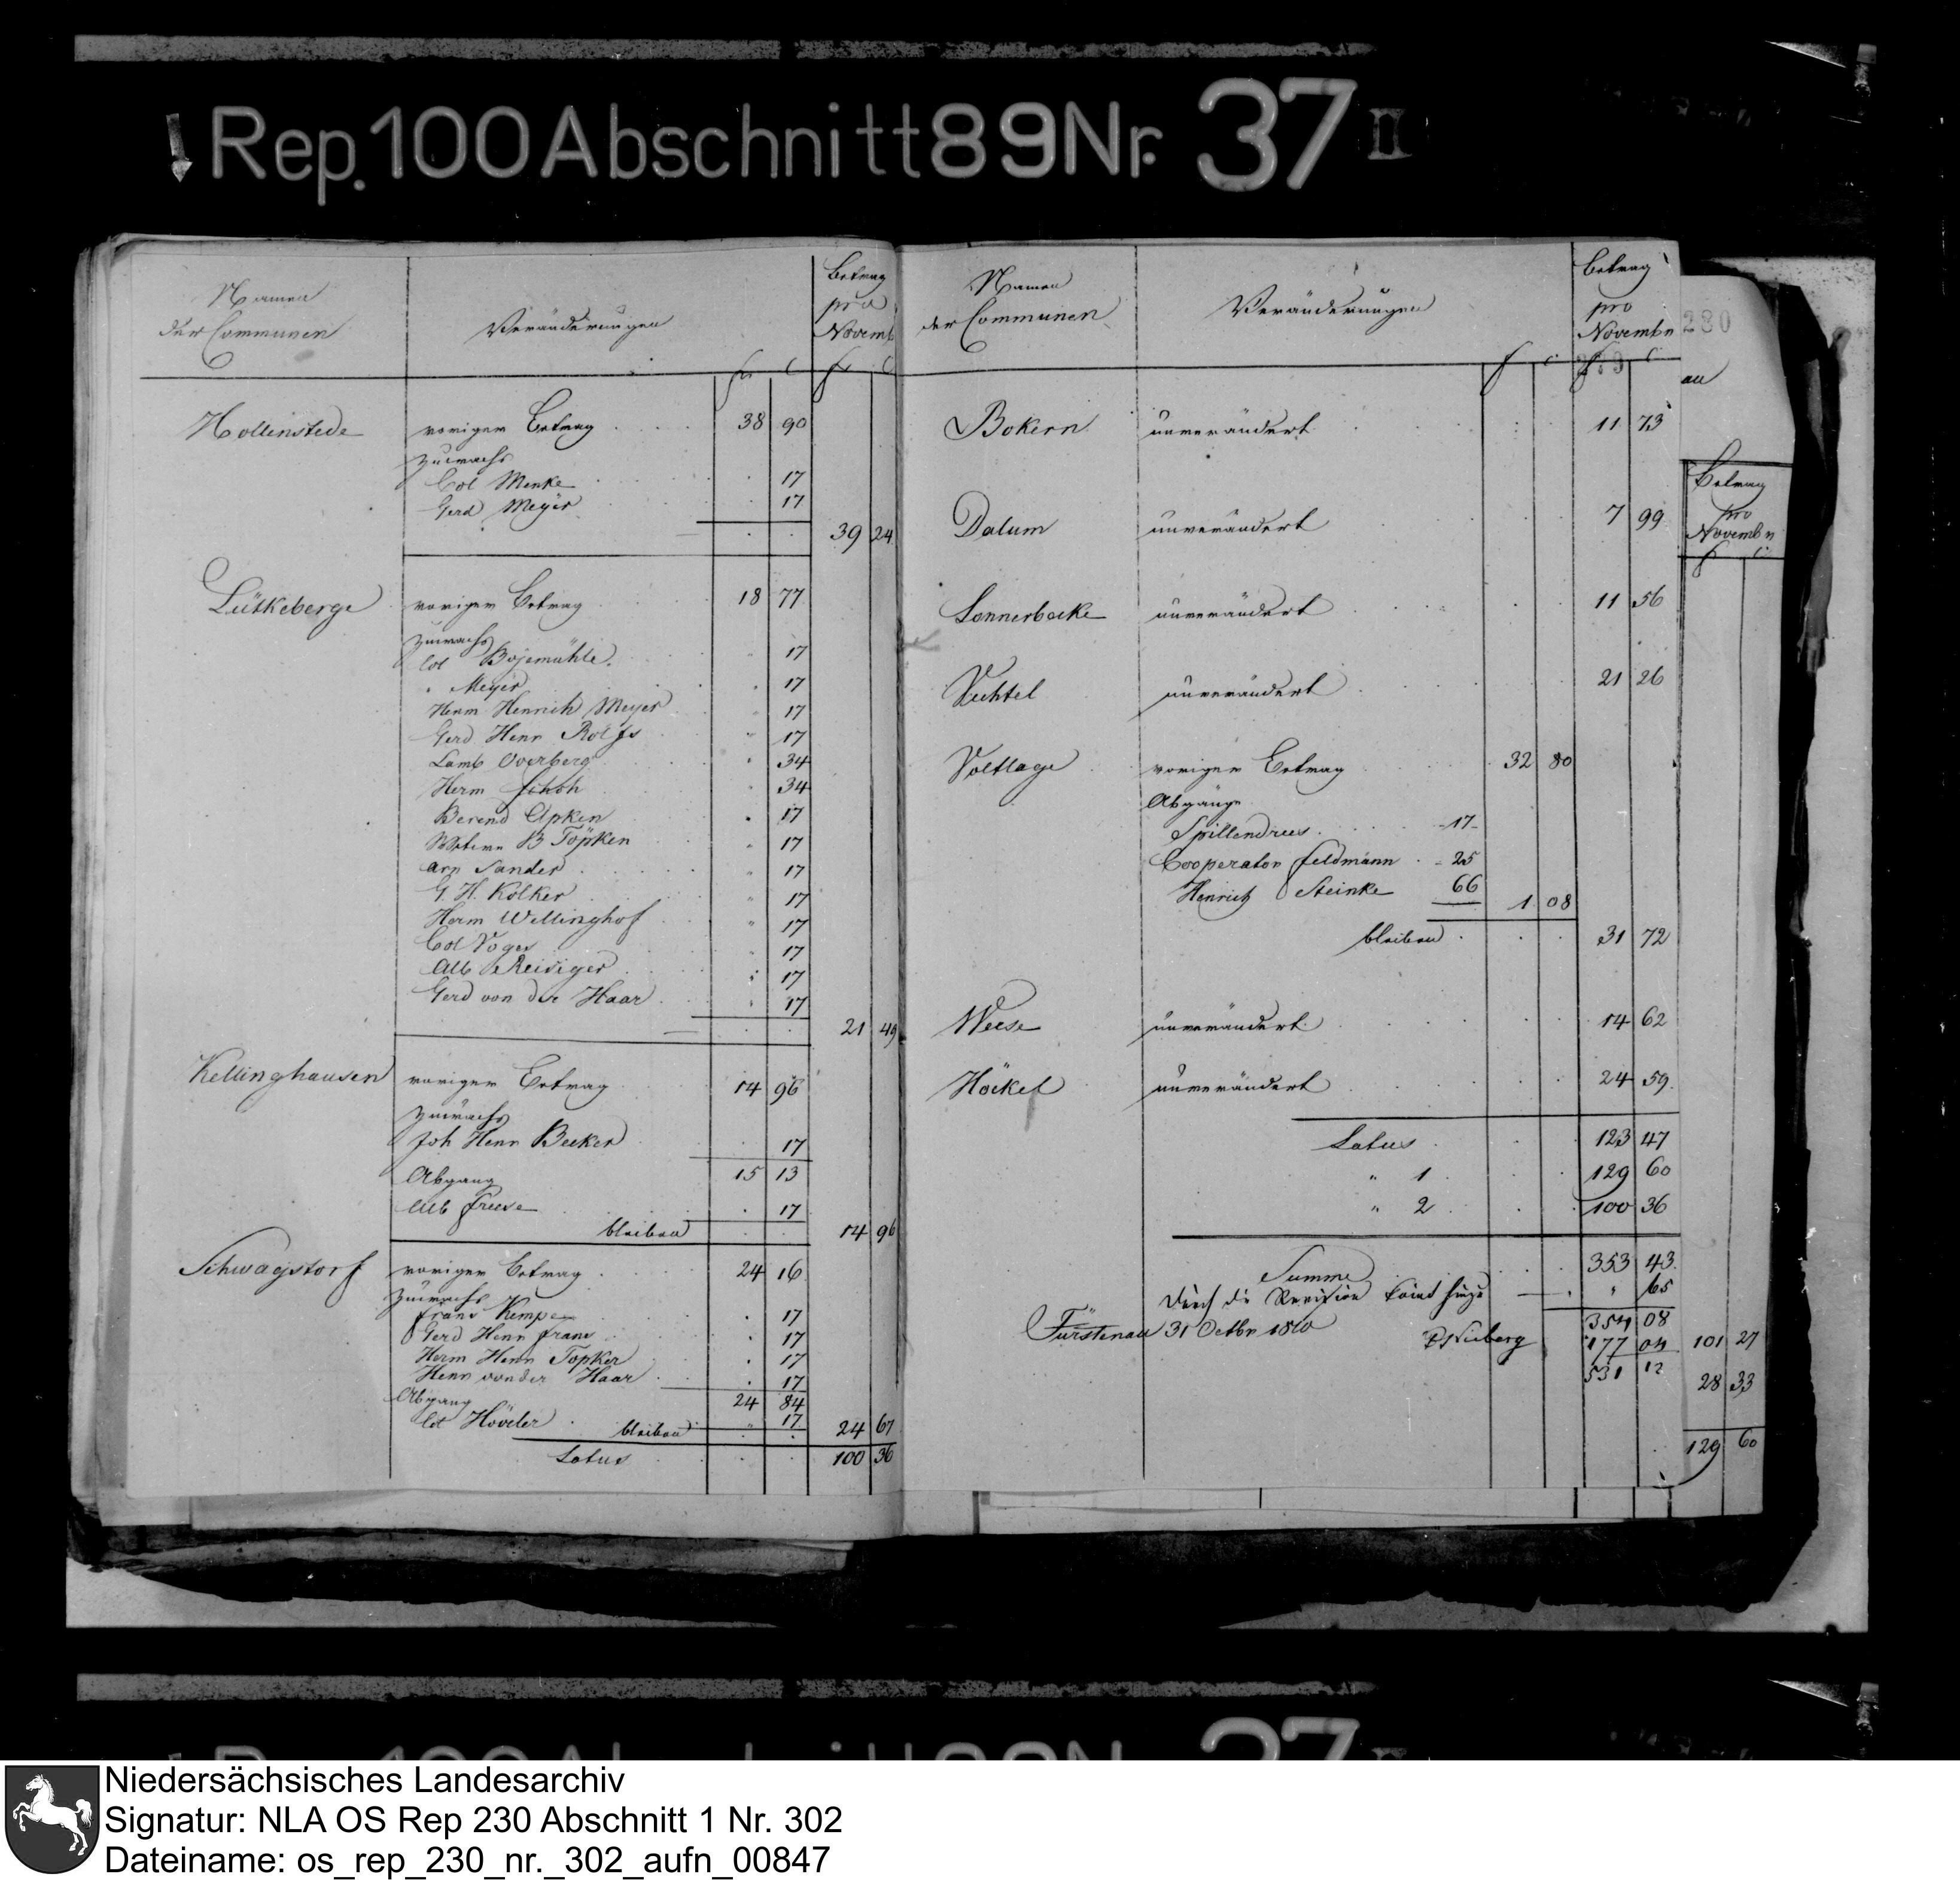 Rep. 100 Abschnitt 89 Nr. 37 II
Namen der Communen
Veränderungen
Betrag pro Novemb
fr c fr c
Hollenstede voriger Betrag 38 90
Zuwachs
Col Menke 17
Gerd Meyer 17
39 24
Lütkeberge voriger Betrag 18 77
Zuwachs
Col Bojemühle 17
" Meyer 17
Herm Henrich Meyer 17
Gerd Henr Rolfs 17
Lamb Overberg 34
Herm Schoh 34
Berend Apken 17
B Töpken 17
Arn Sander 17
G. H. Kolker 17
Herm Wellinghof 17
Col Voges 17
Alb Reisiger 17
Gerd von der Haar 17
21 49
Kellinghausen voriger Betrag 14 96
Zuwachs
Joh Henr Becker 17
15 13
Abgang
Alb Freese 17
bleiben 14 96
Schwagstorf voriger Betrag 24 16
Zuwachs
Frans Kempe 17
Gerd Henr Frans 17
Herm Henr Topker 17
Henr von der Haar 17
24 84
Abgang
Col Höveler 17
bleiben 24 67
Latus 100 36
Namen der Communen
Veränderungen
Betrag pro Novembr
279
f c f c
Bokern unverändert 11 73
Dalum unverändert 7 99
Lonnerbecke unverändert 11 56
Vechtel unverändert 21 26
Voltlage voriger Betrag 32 80
Abgänge
Spillendrees 17
Cooperator Feldmann 25
Henrich Steinke 66
1 08
bleiben 31 72
Weese unverändert 14 62
Höckel unverändert 24 59
Latus 123 47
" 1 129 60
" 2 100 36
Summe 353 43
Durch die Revision kömt hinzu " 65
354 08
Fürstenau 31 Octbr 1810
177 04
531 12
280
Betrag
pro
Novembr
f c
101 27
28 33
129 60
Niedersächsisches Landesarchiv
Signatur: NLA OS Rep 230 Abschnitt 1 Nr. 302
Dateiname: os_rep_230_nr._302_aufn_00847